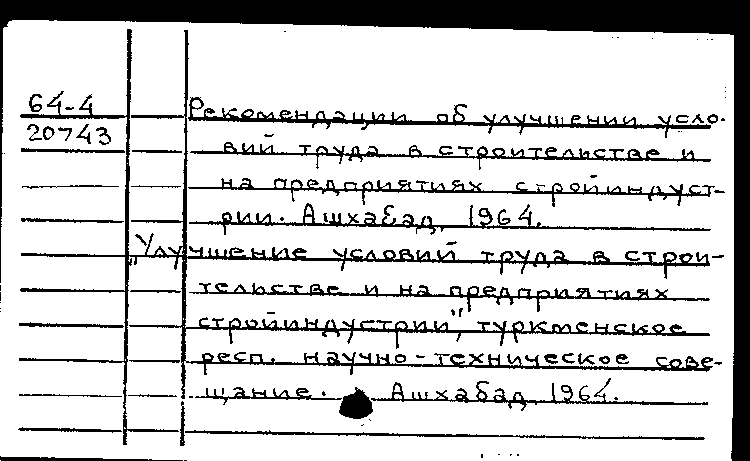 64-4
20743
Рекомендации об улучшении усло-
вий труда в строительстве и
на предприятиях стройиндуст-
рии. Ашхабад, 1964.
"Улучшение условий труда в строи-
тельстве и на предприятиях
стройиндустрии", туркменское
респ. научно-техническое сове-
щание. Ашхабад, 1964.